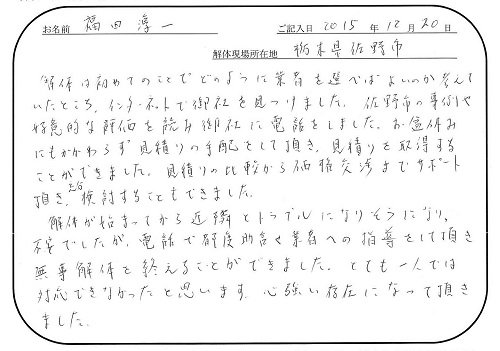 お名前 福田淳一 ご記入日 2015年12月20日
解体現場所在地 栃木県佐野市
解体は初めてのことでどのように業者を選べばよいのか考えて
いたところ、インターネットで御社を見つけました。佐野市の事例や
好意的な評価を読み御社に電話をしました。お盆休み
にもかかわらず見積りの手配をして頂き、見積りを取得する
ことができました。見積りの比較から価格交渉までサポート
頂き、充分検討することもできました。
解体が始まってから近隣とトラブルになりそうになり、
不安でしたが、電話で都度助言や業者への指導をして頂き
無事解体を終えることができました。とても一人では
対応できなかったと思います。心強い存在になって頂き
ました。